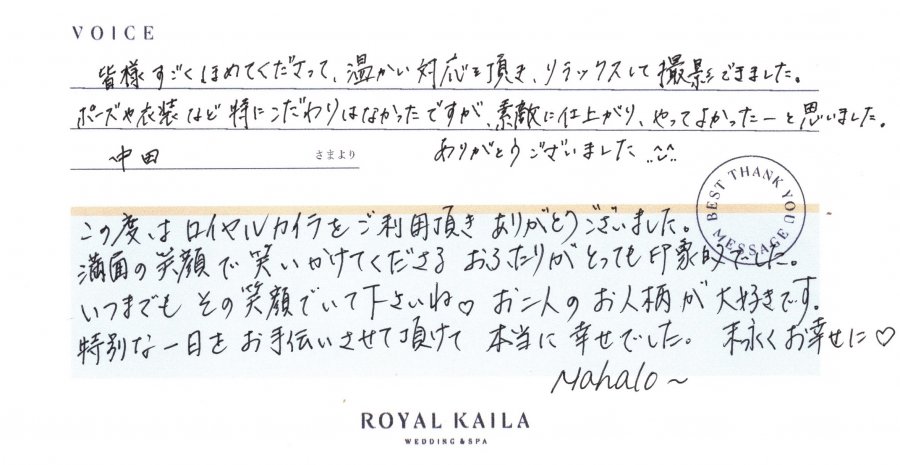 VOICE
皆様すごくほめてくださって、温かい対応を頂き、リラックスして撮影できました。
ポーズや衣装など特にこだわりはなかったですが、素敵に仕上がり、やってよかったーと思いました。
中田 さまより ありがとうございました
BEST THANK YOU MESSAGE
この度はロイヤルカイラをご利用頂きありがとうございました。
満面の笑顔で笑いかけてくださるおふたりがとっても印象的でした。
いつまでもその笑顔でいて下さいね♡ お二人のお人柄が大好きです。
特別な一日をお手伝いさせて頂けて本当に幸せでした。末永くお幸せに♡
Mahalo~
ROYAL KAILA
WEDDING & SPA